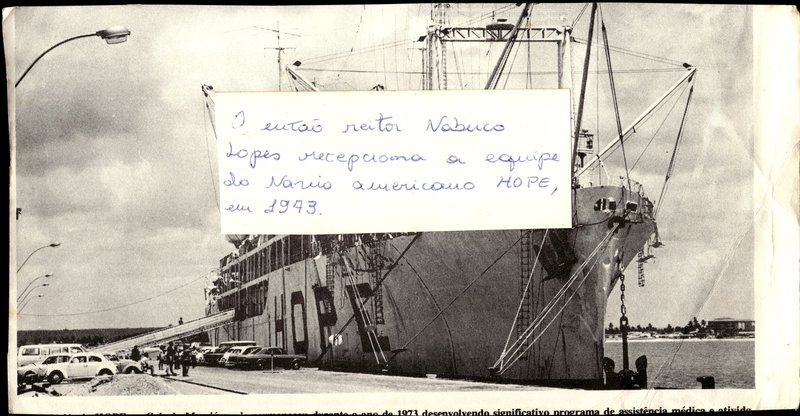 O então reitor Nabuco
Lopes recepciona a equipe
do Navio americano HOPE,
em 1973.
HOPE
HOPE durante o ano de 1973 desenvolvendo significativo programa de assistência médica e